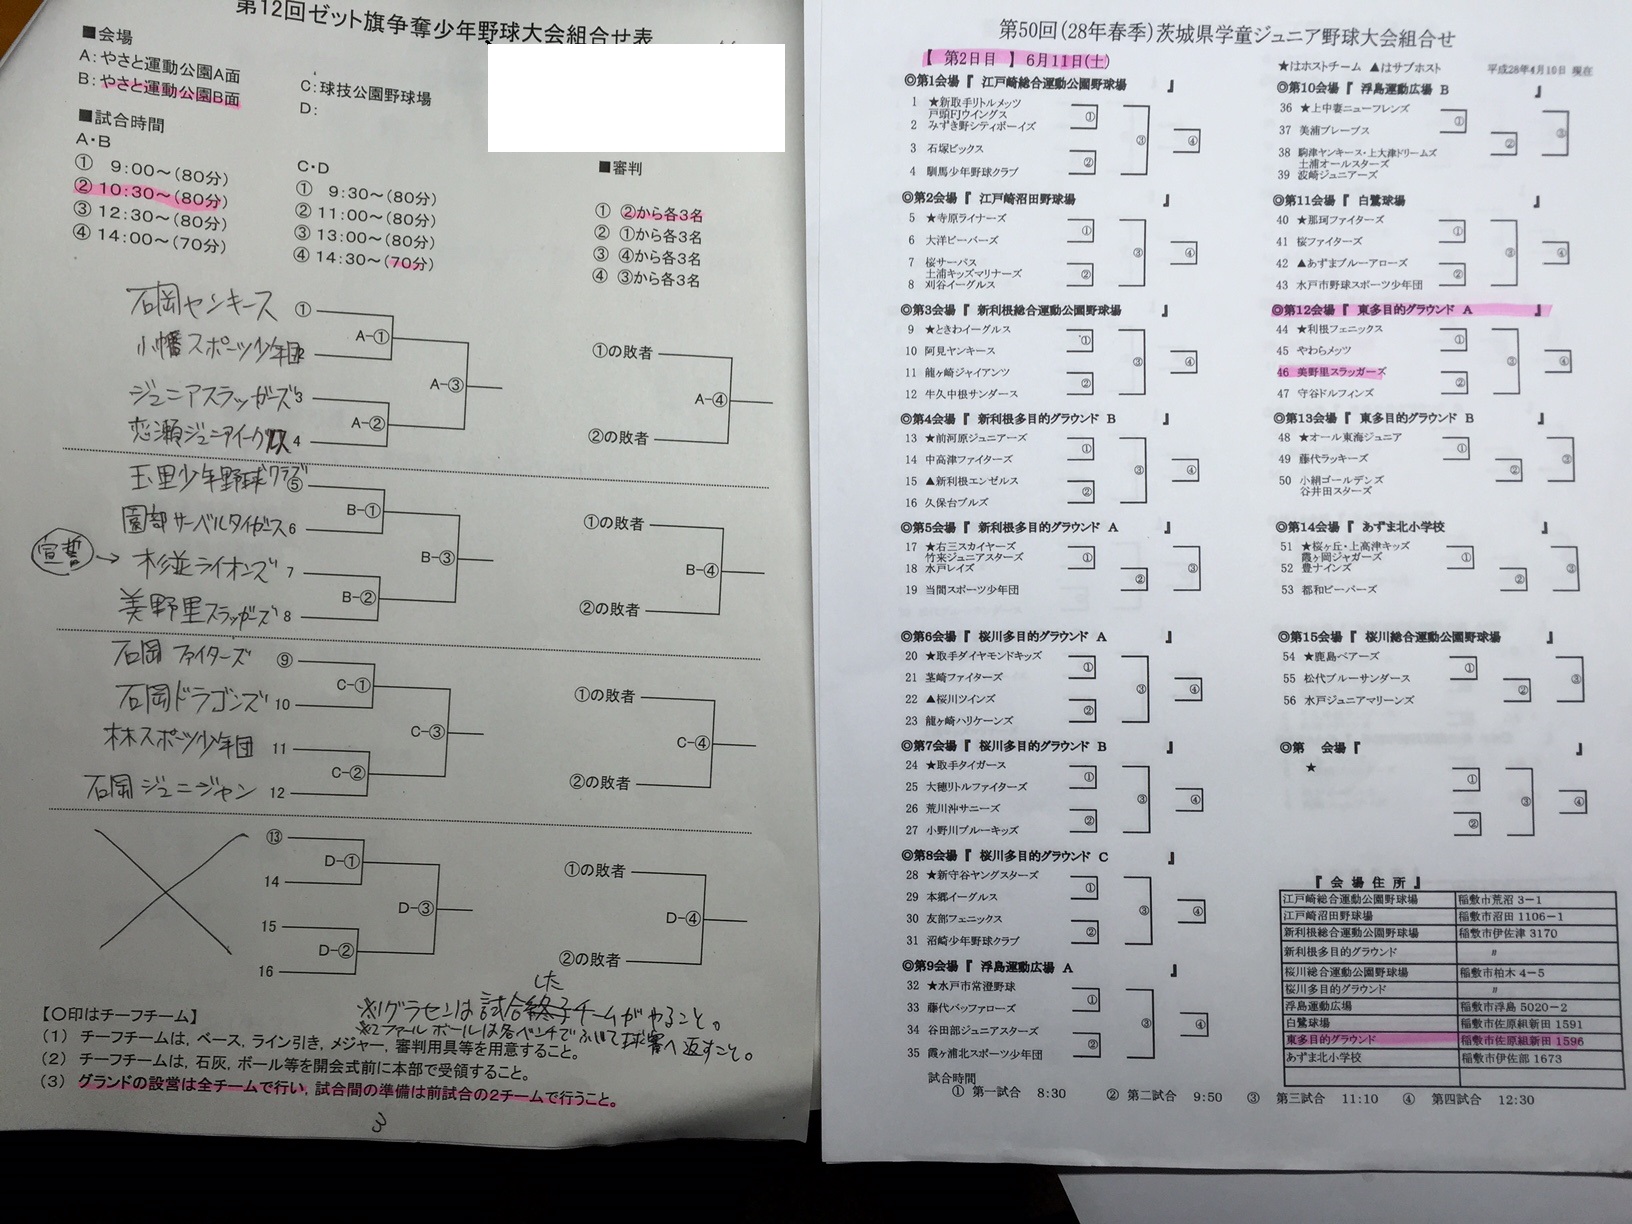 第12回ゼット旗争奪少年野球大会組合せ表
■会場
A:やさと運動公園A面
B:やさと運動公園B面
C:球技公園野球場
D:
■試合時間
A・B
① 9:00~(80分)
② 10:30~(80分)
③ 12:30~(80分)
④ 14:00~(70分)
C・D
① 9:30~(80分)
② 11:00~(80分)
③ 13:00~(80分)
④ 14:30~(70分)
■審判
① ②から各3名
② ①から各3名
③ ④から各3名
④ ③から各3名
石岡ヤンキース ①
小幡スポーツ少年団
A-①
ジュニアスラッガーズ 3
恋瀬ジュニアイーグルス 4
A-②
A-③
①の敗者
②の敗者
A-④
玉里少年野球クラブ ⑤
園部サーベルタイガース 6
B-①
宣誓 → 杉並ライオンズ 7
美野里スラッガーズ 8
B-②
B-③
①の敗者
②の敗者
B-④
石岡ファイターズ ⑨
石岡ドラゴンズ 10
C-①
林スポーツ少年団 11
石岡ジュニジャン 12
C-②
C-③
①の敗者
②の敗者
C-④
⑬
14
D-①
15
16
D-②
D-③
①の敗者
②の敗者
D-④
【○印はチーフチーム】
※1グラセンは試合終了したチームがやること。
※2ファールボールは各ベンチでふいて球審へ返すこと。
(1) チーフチームは,ベース,ライン引き,メジャー,審判用具等を用意すること。
(2) チーフチームは,石灰,ボール等を開会式前に本部で受領すること。
(3) グランドの設営は全チームで行い,試合間の準備は前試合の2チームで行うこと。
3
第50回(28年春季)茨城県学童ジュニア野球大会組合せ
【 第2日目 】 6月11日(土)
★はホストチーム ▲はサブホスト
平成28年4月10日 現在
◎第1会場『 江戸崎総合運動公園野球場 』
1 ★新取手リトルメッツ
戸頭FJウイングス
2 みずき野シティボーイズ
3 石塚ビックス
4 馴馬少年野球クラブ
① ② ③ ④
◎第2会場『 江戸崎沼田野球場 』
5 ★寺原ライナーズ
6 大洋ビーバーズ
7 桜サーパス
土浦キッズマリナーズ
8 刈谷イーグルス
① ② ③ ④
◎第3会場『 新利根総合運動公園野球場 』
9 ★ときわイーグルス
10 阿見ヤンキース
11 龍ヶ崎ジャイアンツ
12 牛久中根サンダース
① ② ③ ④
◎第4会場『 新利根多目的グラウンド B 』
13 ★前河原ジュニアーズ
14 中高津ファイターズ
15 ▲新利根エンゼルス
16 久保台ブルズ
① ② ③ ④
◎第5会場『 新利根多目的グラウンド A 』
17 ★右三スカイヤーズ
竹来ジュニアスターズ
18 水戸レイズ
19 当間スポーツ少年団
① ② ③
◎第6会場『 桜川多目的グラウンド A 』
20 ★取手ダイヤモンドキッズ
21 茎崎ファイターズ
22 ▲桜川ツインズ
23 龍ヶ崎ハリケーンズ
① ② ③ ④
◎第7会場『 桜川多目的グラウンド B 』
24 ★取手タイガース
25 大穂リトルファイターズ
26 荒川沖サニーズ
27 小野川ブルーキッズ
① ② ③ ④
◎第8会場『 桜川多目的グラウンド C 』
28 ★新守谷ヤングスターズ
29 本郷イーグルス
30 友部フェニックス
31 沼崎少年野球クラブ
① ② ③ ④
◎第9会場『 浮島運動広場 A 』
32 ★水戸市常澄野球
33 藤代バッファローズ
34 谷田部ジュニアスターズ
35 霞ヶ浦北スポーツ少年団
① ② ③ ④
◎第10会場『 浮島運動広場 B 』
36 ★上中妻ニューフレンズ
37 美浦ブレーブス
38 駒津ヤンキース・上大津ドリームズ
土浦オールスターズ
39 波崎ジュニアーズ
① ② ③
◎第11会場『 白鷺球場 』
40 ★那珂ファイターズ
41 桜ファイターズ
42 ▲あずまブルーアローズ
43 水戸市野球スポーツ少年団
① ② ③ ④
◎第12会場『 東多目的グラウンド A 』
44 ★利根フェニックス
45 やわらメッツ
46 美野里スラッガーズ
47 守谷ドルフィンズ
① ② ③ ④
◎第13会場『 東多目的グラウンド B 』
48 ★オール東海ジュニア
49 藤代ラッキーズ
50 小絹ゴールデンズ
谷井田スターズ
① ② ③
◎第14会場『 あずま北小学校 』
51 ★桜ヶ丘・上高津キッズ
霞ヶ岡ジャガーズ
52 豊ナインズ
53 都和ビーバーズ
① ② ③
◎第15会場『 桜川総合運動公園野球場 』
54 ★鹿島ベアーズ
55 松代ブルーサンダース
56 水戸ジュニアマリーンズ
① ② ③
◎第 会場『 』
★
① ② ③ ④
『 会 場 住 所 』
江戸崎総合運動公園野球場 稲敷市荒沼 3-1
江戸崎沼田野球場 稲敷市沼田 1106-1
新利根総合運動公園野球場 稲敷市伊佐津 3170
新利根多目的グラウンド 〃
桜川総合運動公園野球場 稲敷市柏木 4-5
桜川多目的グラウンド 〃
浮島運動広場 稲敷市浮島 5020-2
白鷺球場 稲敷市佐原組新田 1591
東多目的グラウンド 稲敷市佐原組新田 1596
あずま北小学校 稲敷市伊佐部 1673
試合時間
① 第一試合 8:30 ② 第二試合 9:50 ③ 第三試合 11:10 ④ 第四試合 12:30